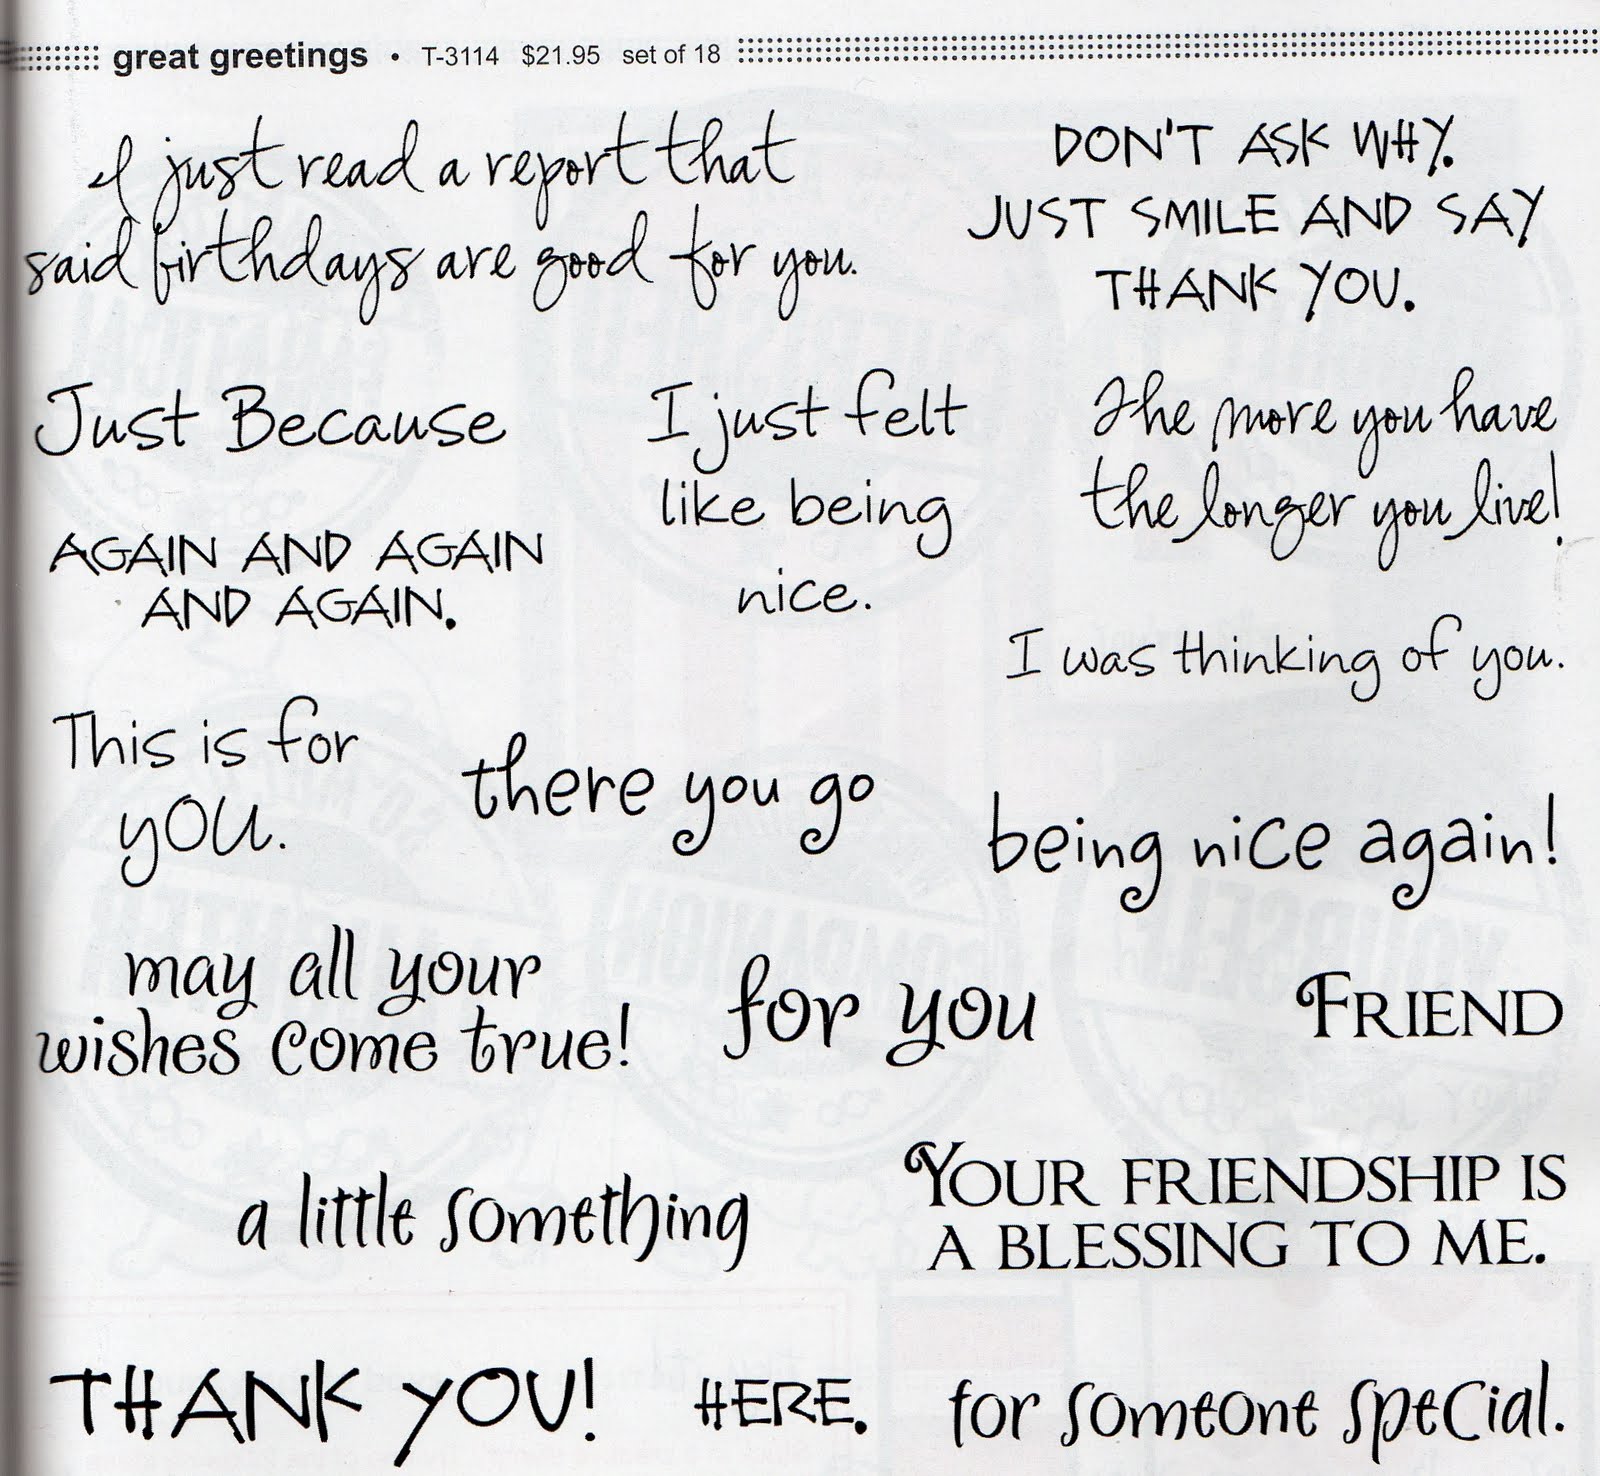 great greetings • T-3114 $21.95 set of 18
I just read a report that
said birthdays are good for you.
DON'T ASK WHY.
JUST SMILE AND SAY
THANK YOU.
Just Because
I just felt
like being
nice.
The more you have
the longer you live!
AGAIN AND AGAIN
AND AGAIN.
I was thinking of you.
This is for
you.
there you go
being nice again!
may all your
wishes come true!
for you
FRIEND
a little something
YOUR FRIENDSHIP IS
A BLESSING TO ME.
THANK YOU!
HERE.
for someone special.